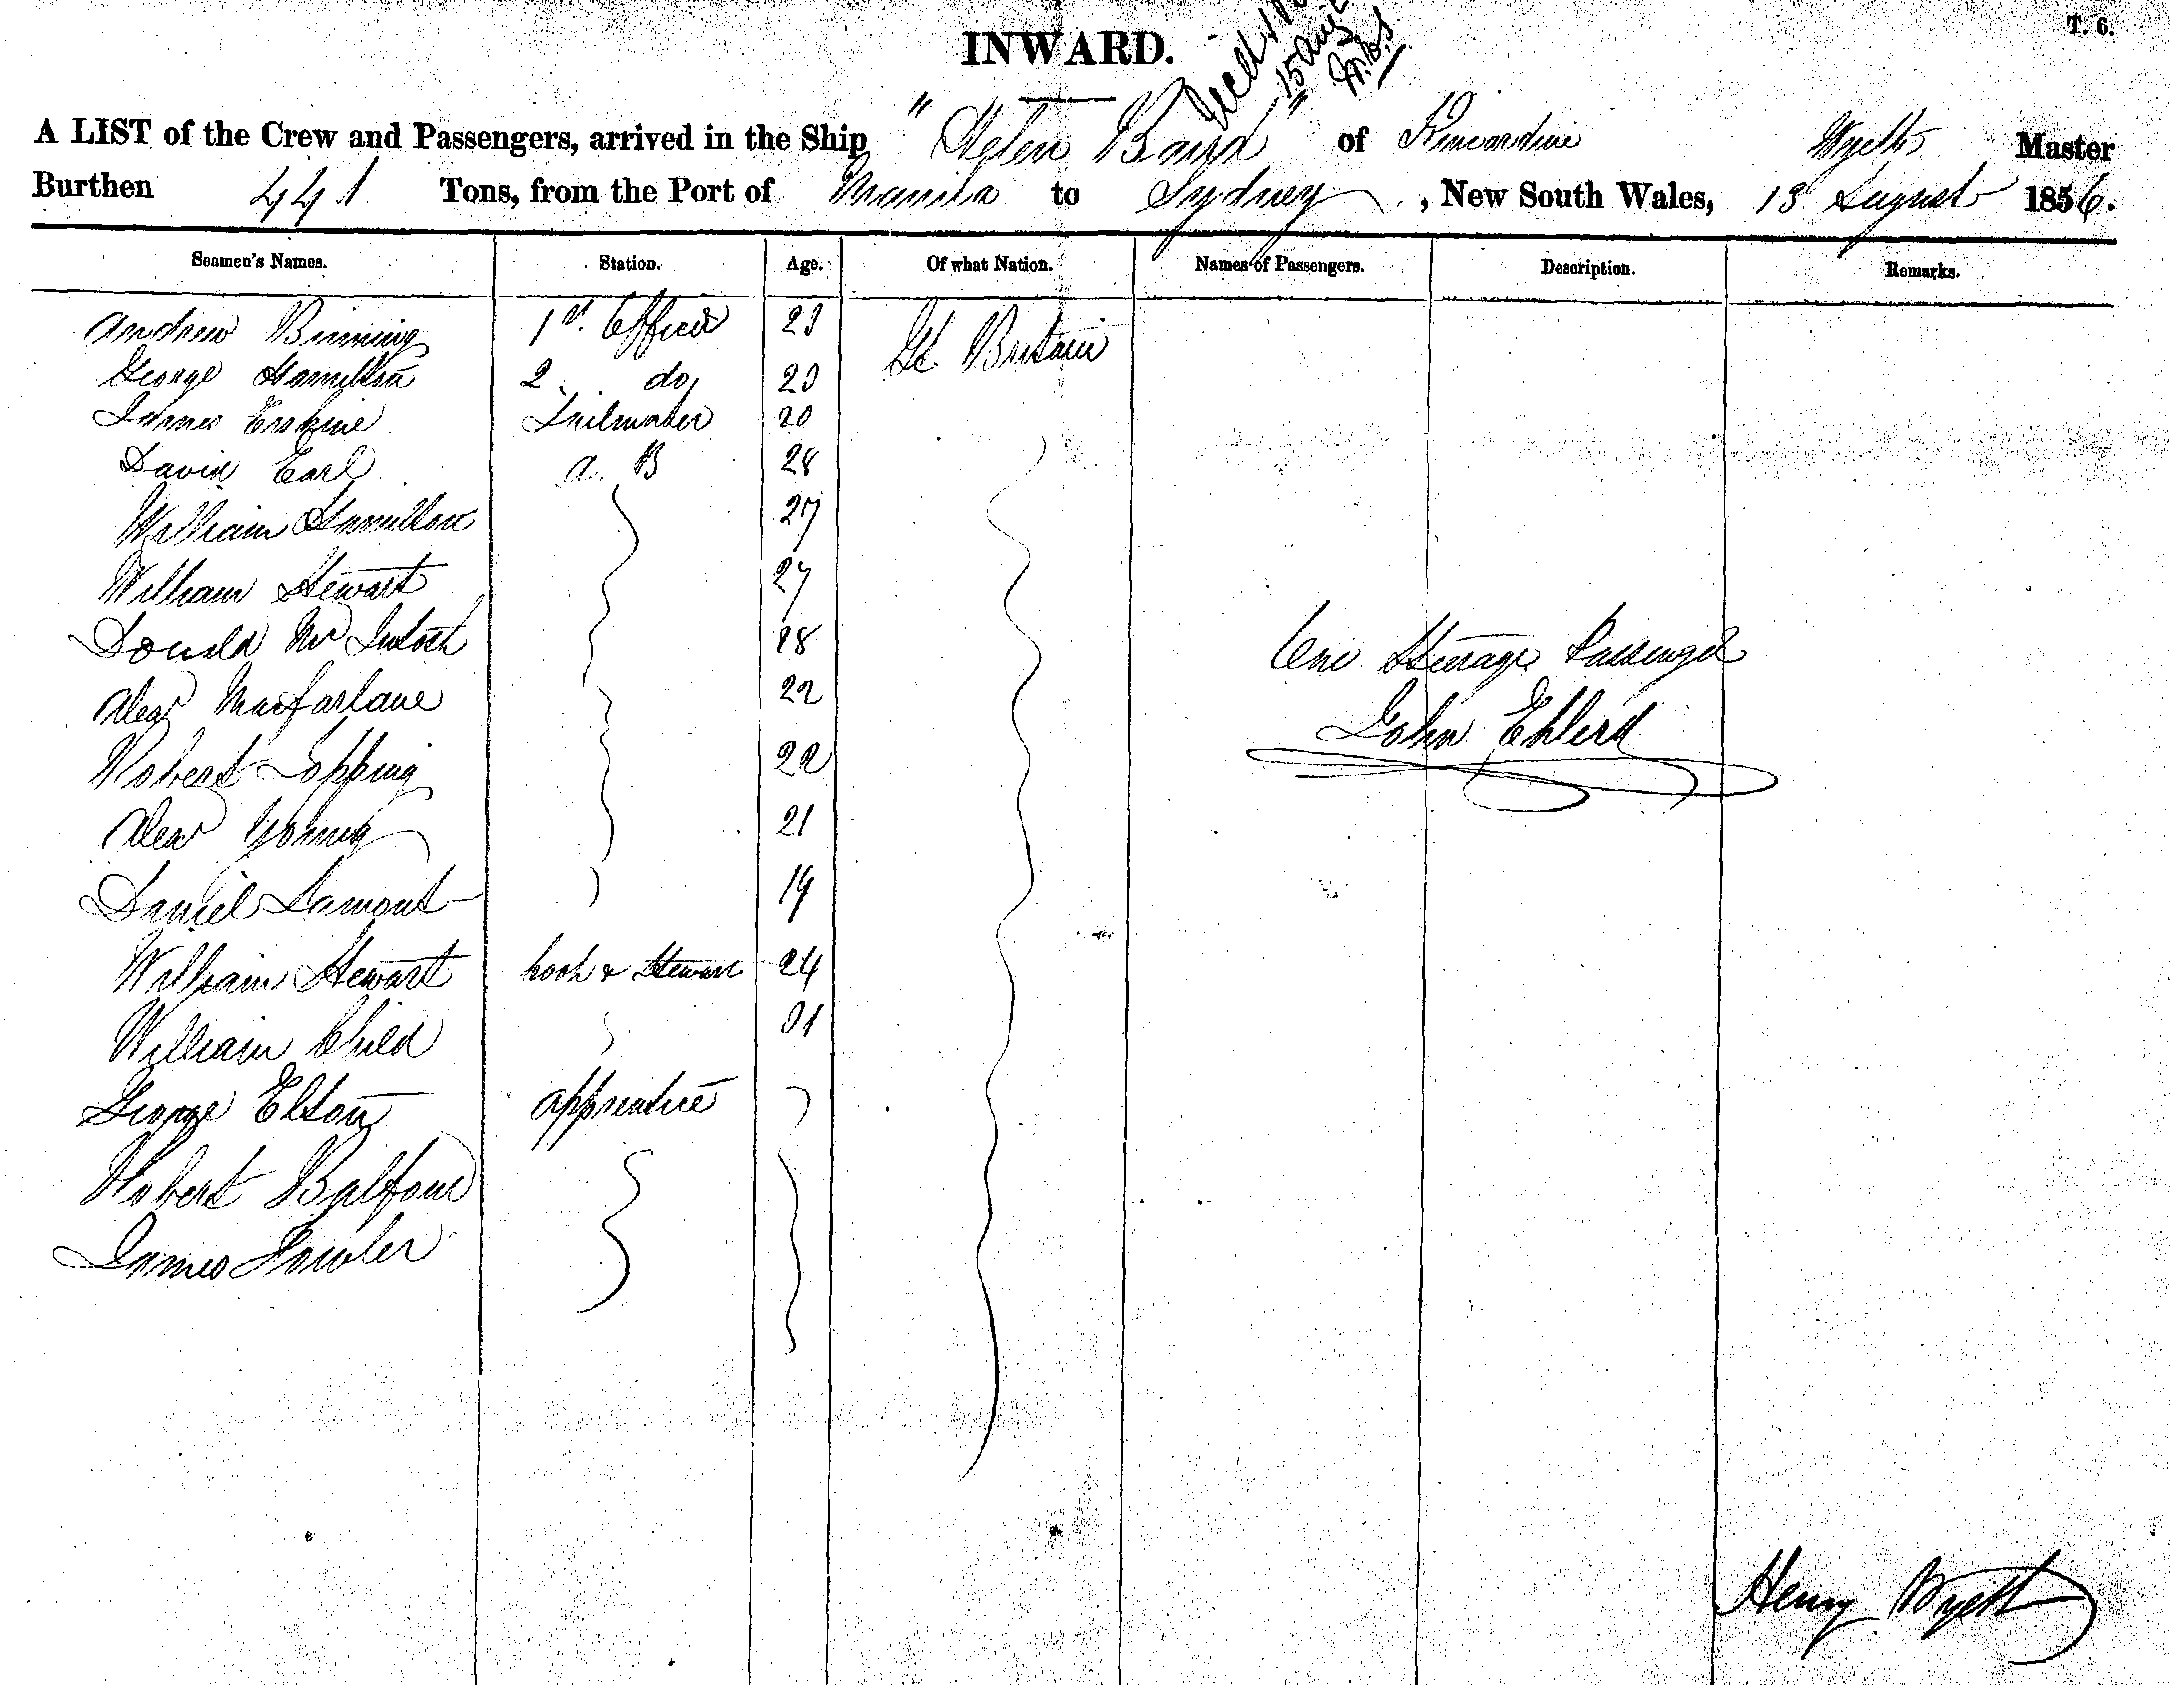 T. 6.
INWARD.
15 Aug
A LIST of the Crew and Passengers, arrived in the Ship "Helen Baird" of Kincardine Wyett Master
Burthen 441 Tons, from the Port of Manila to Sydney, New South Wales, 13 August 1856.
Seamen's Names. Station. Age. Of what Nation. Names of Passengers. Description. Remarks.
Andrew Binning 1st. Officer 23 Gt Britain
George Hamilton 2 do 23
James Erskine Sailmaker 20
David Earl A. B 28
William Hamilton 27
William Stewart 27
Donald Mc Intosh 28
Alexr Macfarlane 22
Robert Topping 22
Alexr Young 21
Daniel Lamont 19
William Stewart Cook & Steward 24
William Child 31
George Elton apprentice
Robert Balfour
James Fowler
One Steerage Passenger
John Ehlers
Henry Wyett